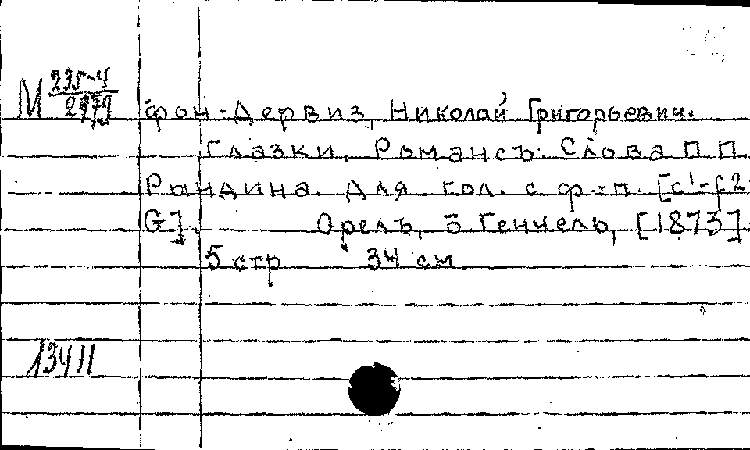 М 235-4
2979
фон-Дервиз, Николай Григорьевич.
Глазки. Романсъ. Слова П П
Рындина. Для гол. с ф-п. [c'-f2
G].      Орелъ, З Генчель, [1873]
5 стр    34 см
13411